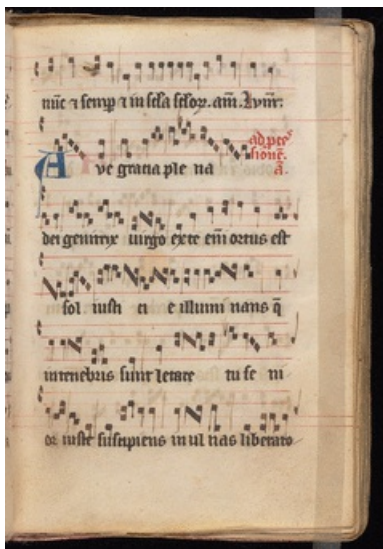 nūc ⁊ semp ⁊ in scła scłoꝝ. am̄.
ad pces
sionē.
a.
Ave gratia ple na
dei genitrix uirgo ex te eni ortus est
sol iusti ci e illumi nans q̄
in tenebris sunt letare tu se ni
or iuste suscipiens in ul nas liberato